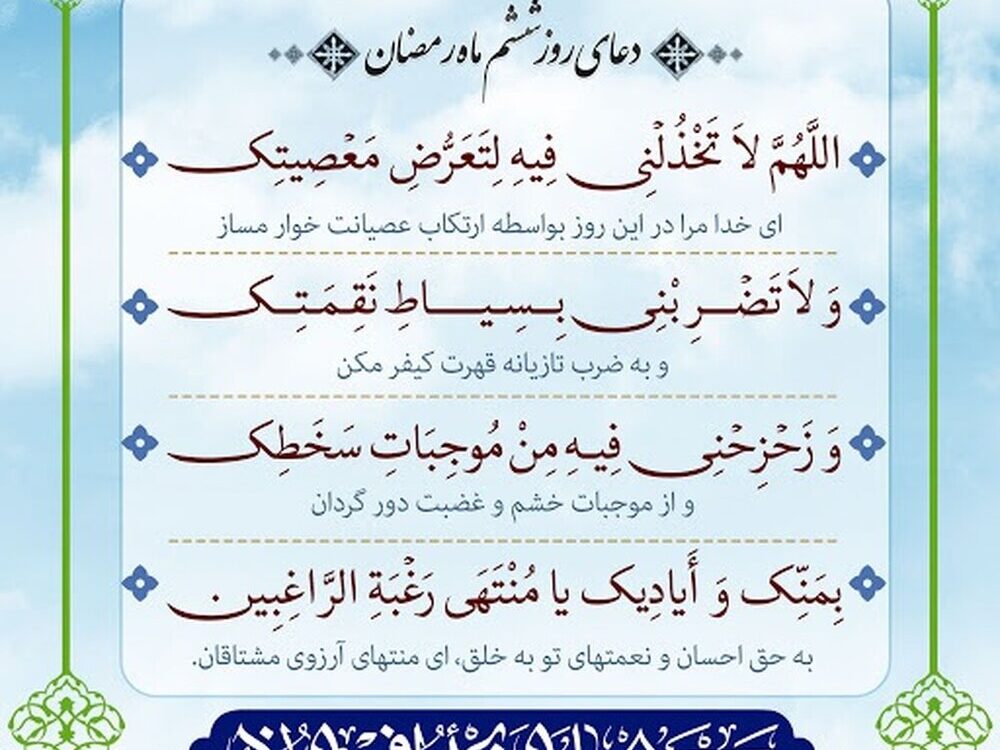 دعای روز ششم ماه رمضان
اللَّهُمَّ لاَ تَخْذُلْنِی فِیهِ لِتَعَرُّضِ مَعْصِیتِک
ای خدا مرا در این روز بواسطه ارتکاب عصیانت خوار مساز
وَ لاَ تَضْرِبْنِی بِسِیاطِ نَقِمَتِک
و به ضرب تازیانه قهرت کیفر مکن
وَ زَحْزِحْنِی فِیهِ مِنْ مُوجِبَاتِ سَخَطِک
و از موجبات خشم و غضبت دور گردان
بِمَنِّک وَ أَیادِیک یا مُنْتَهَی رَغْبَةِ الرَّاغِبِین.
به حق احسان و نعمتهای تو به خلق، ای منتهای آرزوی مشتاقان.